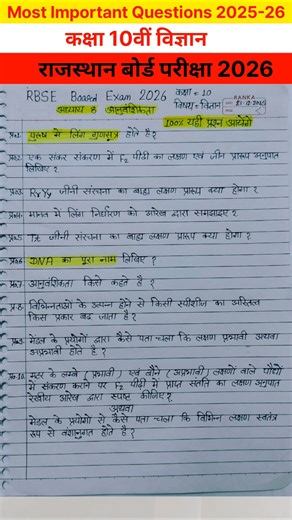 Most Important Questions 2025-26
कक्षा 10वीं विज्ञान
राजस्थान बोर्ड परीक्षा 2026
RBSE Board Exam 2026 कक्षा = 10
अध्याय 8 आनुवंशिकता विषय = विज्ञान
100% यही प्रश्न आयेगें
प्र०1. पुरुष में लिंग गुणसूत्र होते है ?
प्र०2. एक संकर संकरण में F2 पीढ़ी का लक्षण एवं जीन प्रारूप अनुपात
लिखिए ?
प्र०3. RrYy जीनी संरचना का बाह्य लक्षण प्रारूप क्या होगा ?
प्र०4. मानव में लिंग निर्धारण को आरेख द्वारा समझाइए ?
प्र०5. Tt जीनी संरचना का बाह्य लक्षण प्रारूप क्या होगा ?
प्र०6. DNA का पूरा नाम लिखिए ?
प्र०7. आनुवंशिकता किसे कहते है ?
प्र०8. विभिन्नताओं के उत्पन्न होने से किसी स्पीशीज का अस्तित्व
किस प्रकार बढ़ जाता है ?
प्र०9. मेंडल के प्रयोगों द्वारा कैसे पता चला कि लक्षण प्रभावी अथवा
अप्रभावी होते है ?
प्र०10. मटर के लम्बे (प्रभावी) एवं बौने (अप्रभावी) लक्षणों वाले पौधों
में संकरण कराने पर F2 पीढ़ी में प्राप्त संतति का लक्षण अनुपात
रेखीय आरेख द्वारा स्पष्ट कीजिए ?
अथवा
मेंडल के प्रयोगों से कैसे पता चला कि विभिन्न लक्षण स्वतंत्र
रूप से वंशानुगत होते है ?